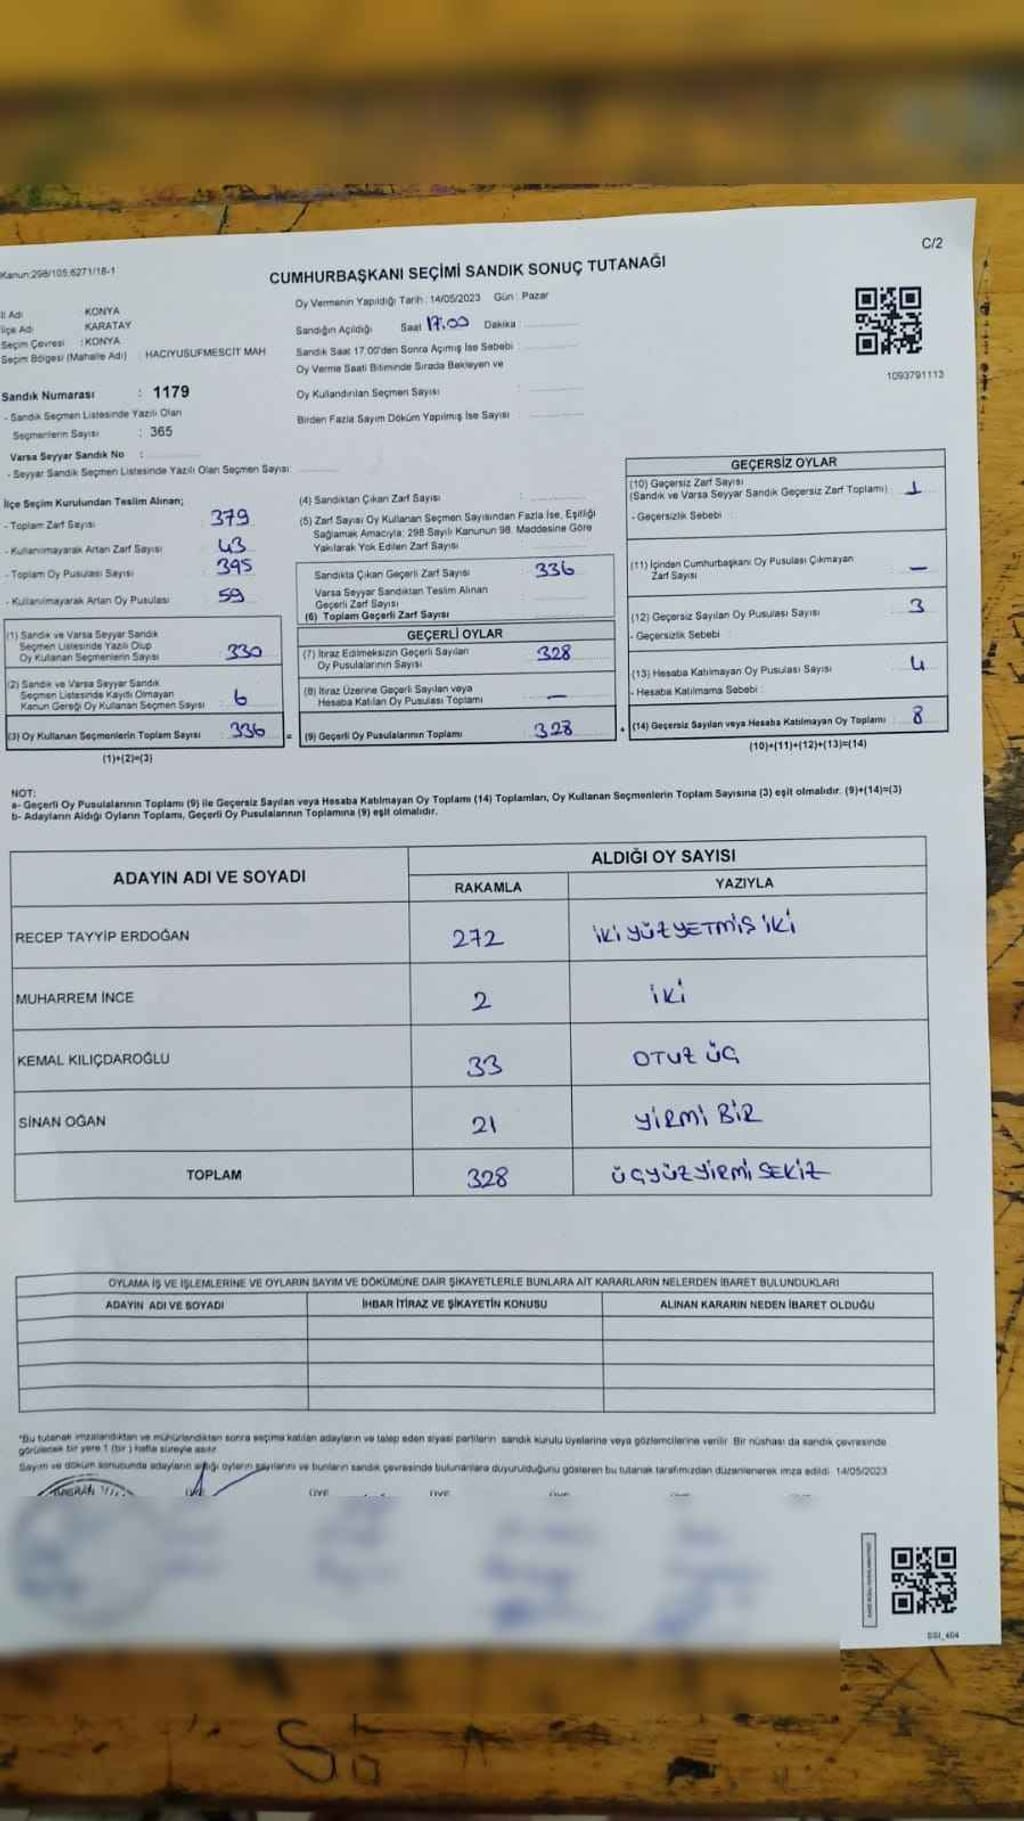 C/2
Kanun:298/105.6271/18-1
CUMHURBAŞKANI SEÇİMİ SANDIK SONUÇ TUTANAĞI
İl Adı KONYA
İlçe Adı KARATAY
Seçim Çevresi : KONYA
Seçim Bölgesi (Mahalle Adı) : HACIYUSUFMESCİT MAH
Oy Vermenin Yapıldığı Tarih : 14/05/2023 Gün : Pazar
Sandığın Açıldığı Saat 17.00 Dakika :
Sandık Saat 17.00'den Sonra Açılmış İse Sebebi :
Oy Verme Saati Bitiminde Sırada Bekleyen ve
Oy Kullandırılan Seçmen Sayısı :
Birden Fazla Sayım Döküm Yapılmış İse Sayısı :
1093791113
Sandık Numarası : 1179
- Sandık Seçmen Listesinde Yazılı Olan
Seçmenlerin Sayısı : 365
Varsa Seyyar Sandık No :
- Seyyar Sandık Seçmen Listesinde Yazılı Olan Seçmen Sayısı:
İlçe Seçim Kurulundan Teslim Alınan;
- Toplam Zarf Sayısı 379
- Kullanılmayarak Artan Zarf Sayısı 43
- Toplam Oy Pusulası Sayısı 395
- Kullanılmayarak Artan Oy Pusulası 59
(1) Sandık ve Varsa Seyyar Sandık
Seçmen Listesinde Yazılı Olup
Oy Kullanan Seçmenlerin Sayısı 330
(2) Sandık ve Varsa Seyyar Sandık
Seçmen Listesinde Kayıtlı Olmayan
Kanun Gereği Oy Kullanan Seçmen Sayısı 6
(3) Oy Kullanan Seçmenlerin Toplam Sayısı 336
(1)+(2)=(3)
(4) Sandıktan Çıkan Zarf Sayısı :
(5) Zarf Sayısı Oy Kullanan Seçmen Sayısından Fazla İse, Eşitliği
Sağlamak Amacıyla; 298 Sayılı Kanunun 98. Maddesine Göre
Yakılarak Yok Edilen Zarf Sayısı
Sandıkta Çıkan Geçerli Zarf Sayısı 336
Varsa Seyyar Sandıktan Teslim Alınan
Geçerli Zarf Sayısı
(6) Toplam Geçerli Zarf Sayısı
GEÇERLİ OYLAR
(7) İtiraz Edilmeksizin Geçerli Sayılan
Oy Pusulalarının Sayısı 328
(8) İtiraz Üzerine Geçerli Sayılan veya
Hesaba Katılan Oy Pusulası Toplamı —
= (9) Geçerli Oy Pusulalarının Toplamı 328
GEÇERSİZ OYLAR
(10) Geçersiz Zarf Sayısı
(Sandık ve Varsa Seyyar Sandık Geçersiz Zarf Toplamı) 1
- Geçersizlik Sebebi :
(11) İçinden Cumhurbaşkanı Oy Pusulası Çıkmayan
Zarf Sayısı —
(12) Geçersiz Sayılan Oy Pusulası Sayısı 3
- Geçersizlik Sebebi :
(13) Hesaba Katılmayan Oy Pusulası Sayısı 4
- Hesaba Katılmama Sebebi :
+ (14) Geçersiz Sayılan veya Hesaba Katılmayan Oy Toplamı 8
(10)+(11)+(12)+(13)=(14)
NOT:
a- Geçerli Oy Pusulalarının Toplamı (9) ile Geçersiz Sayılan veya Hesaba Katılmayan Oy Toplamı (14) Toplamları, Oy Kullanan Seçmenlerin Toplam Sayısına (3) eşit olmalıdır. (9)+(14)=(3)
b- Adayların Aldığı Oyların Toplamı, Geçerli Oy Pusulalarının Toplamına (9) eşit olmalıdır.
ADAYIN ADI VE SOYADI ALDIĞI OY SAYISI
RAKAMLA YAZIYLA
RECEP TAYYİP ERDOĞAN 272 İKİ YÜZ YETMİŞ İKİ
MUHARREM İNCE 2 İKİ
KEMAL KILIÇDAROĞLU 33 OTUZ ÜÇ
SİNAN OĞAN 21 YİRMİ BİR
TOPLAM 328 ÜÇYÜZ YİRMİ SEKİZ
OYLAMA İŞ VE İŞLEMLERİNE VE OYLARIN SAYIM VE DÖKÜMÜNE DAİR ŞİKAYETLERLE BUNLARA AİT KARARLARIN NELERDEN İBARET BULUNDUKLARI
ADAYIN ADI VE SOYADI İHBAR İTİRAZ VE ŞİKAYETİN KONUSU ALINAN KARARIN NEDEN İBARET OLDUĞU
*Bu tutanak imzalandıktan ve mühürlendikten sonra seçime katılan adayların ve talep eden siyasi partilerin sandık kurulu üyelerine veya gözlemcilerine verilir. Bir nüshası da sandık çevresinde
görülecek bir yere 1 (bir) hafta süreyle asılır.
Sayım ve döküm sonucunda adayların aldığı oyların sayılarını ve bunların sandık çevresinde bulunanlara duyurulduğunu gösteren bu tutanak tarafımızdan düzenlenerek imza edildi. 14/05/2023
ÜYE ÜYE
SSI_404